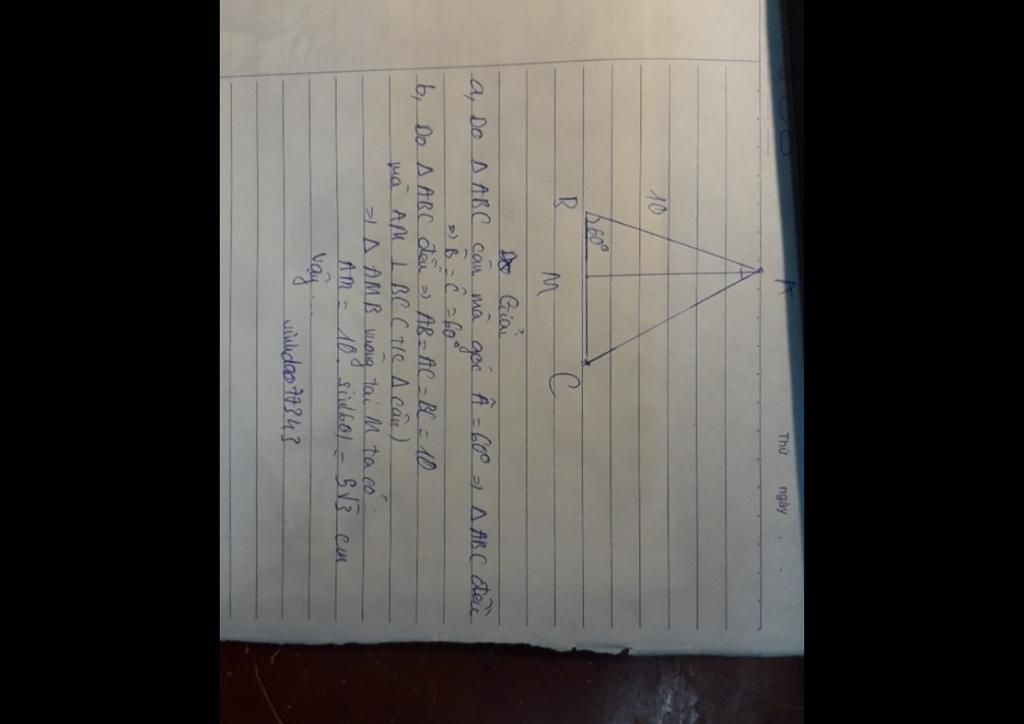 Thứ ngày
A
10
60°
B M C
Giải
a, Do Δ ABC cân mà góc Â = 60° => Δ ABC đều
=> B̂ = Ĉ = 60°
b, Do Δ ABC đều => AB = AC = BC = 10
mà AM ⊥ BC ( T/C Δ cân )
=> Δ AMB vuông tại M ta có
AM = 10 . sin(60) = 5√3 cm
Vậy...
vinhdao77343